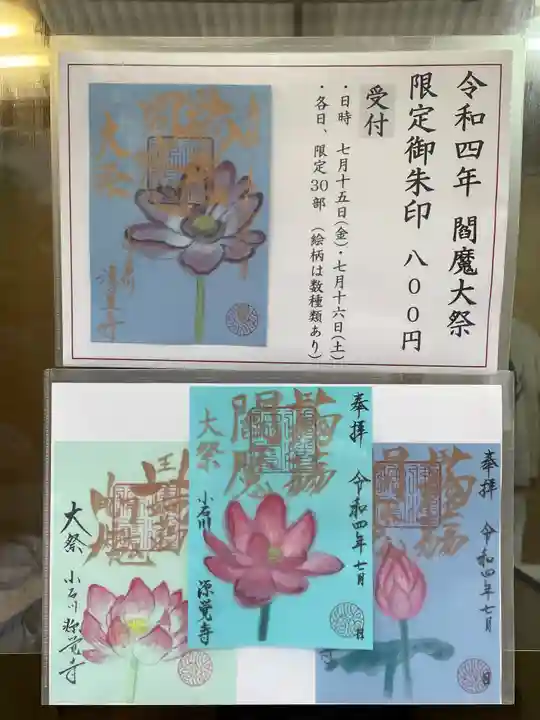 令和四年 閻魔大祭
限定御朱印 八〇〇円
受付
・日時 七月十五日(金)・七月十六日(土)
・各日、限定30部 (絵柄は数種類あり)
大祭
奉拝 令和四年七月
閻魔
大祭
小石川 源覚寺
奉拝 令和四年七月
日
王
大祭
小石川 源覚寺